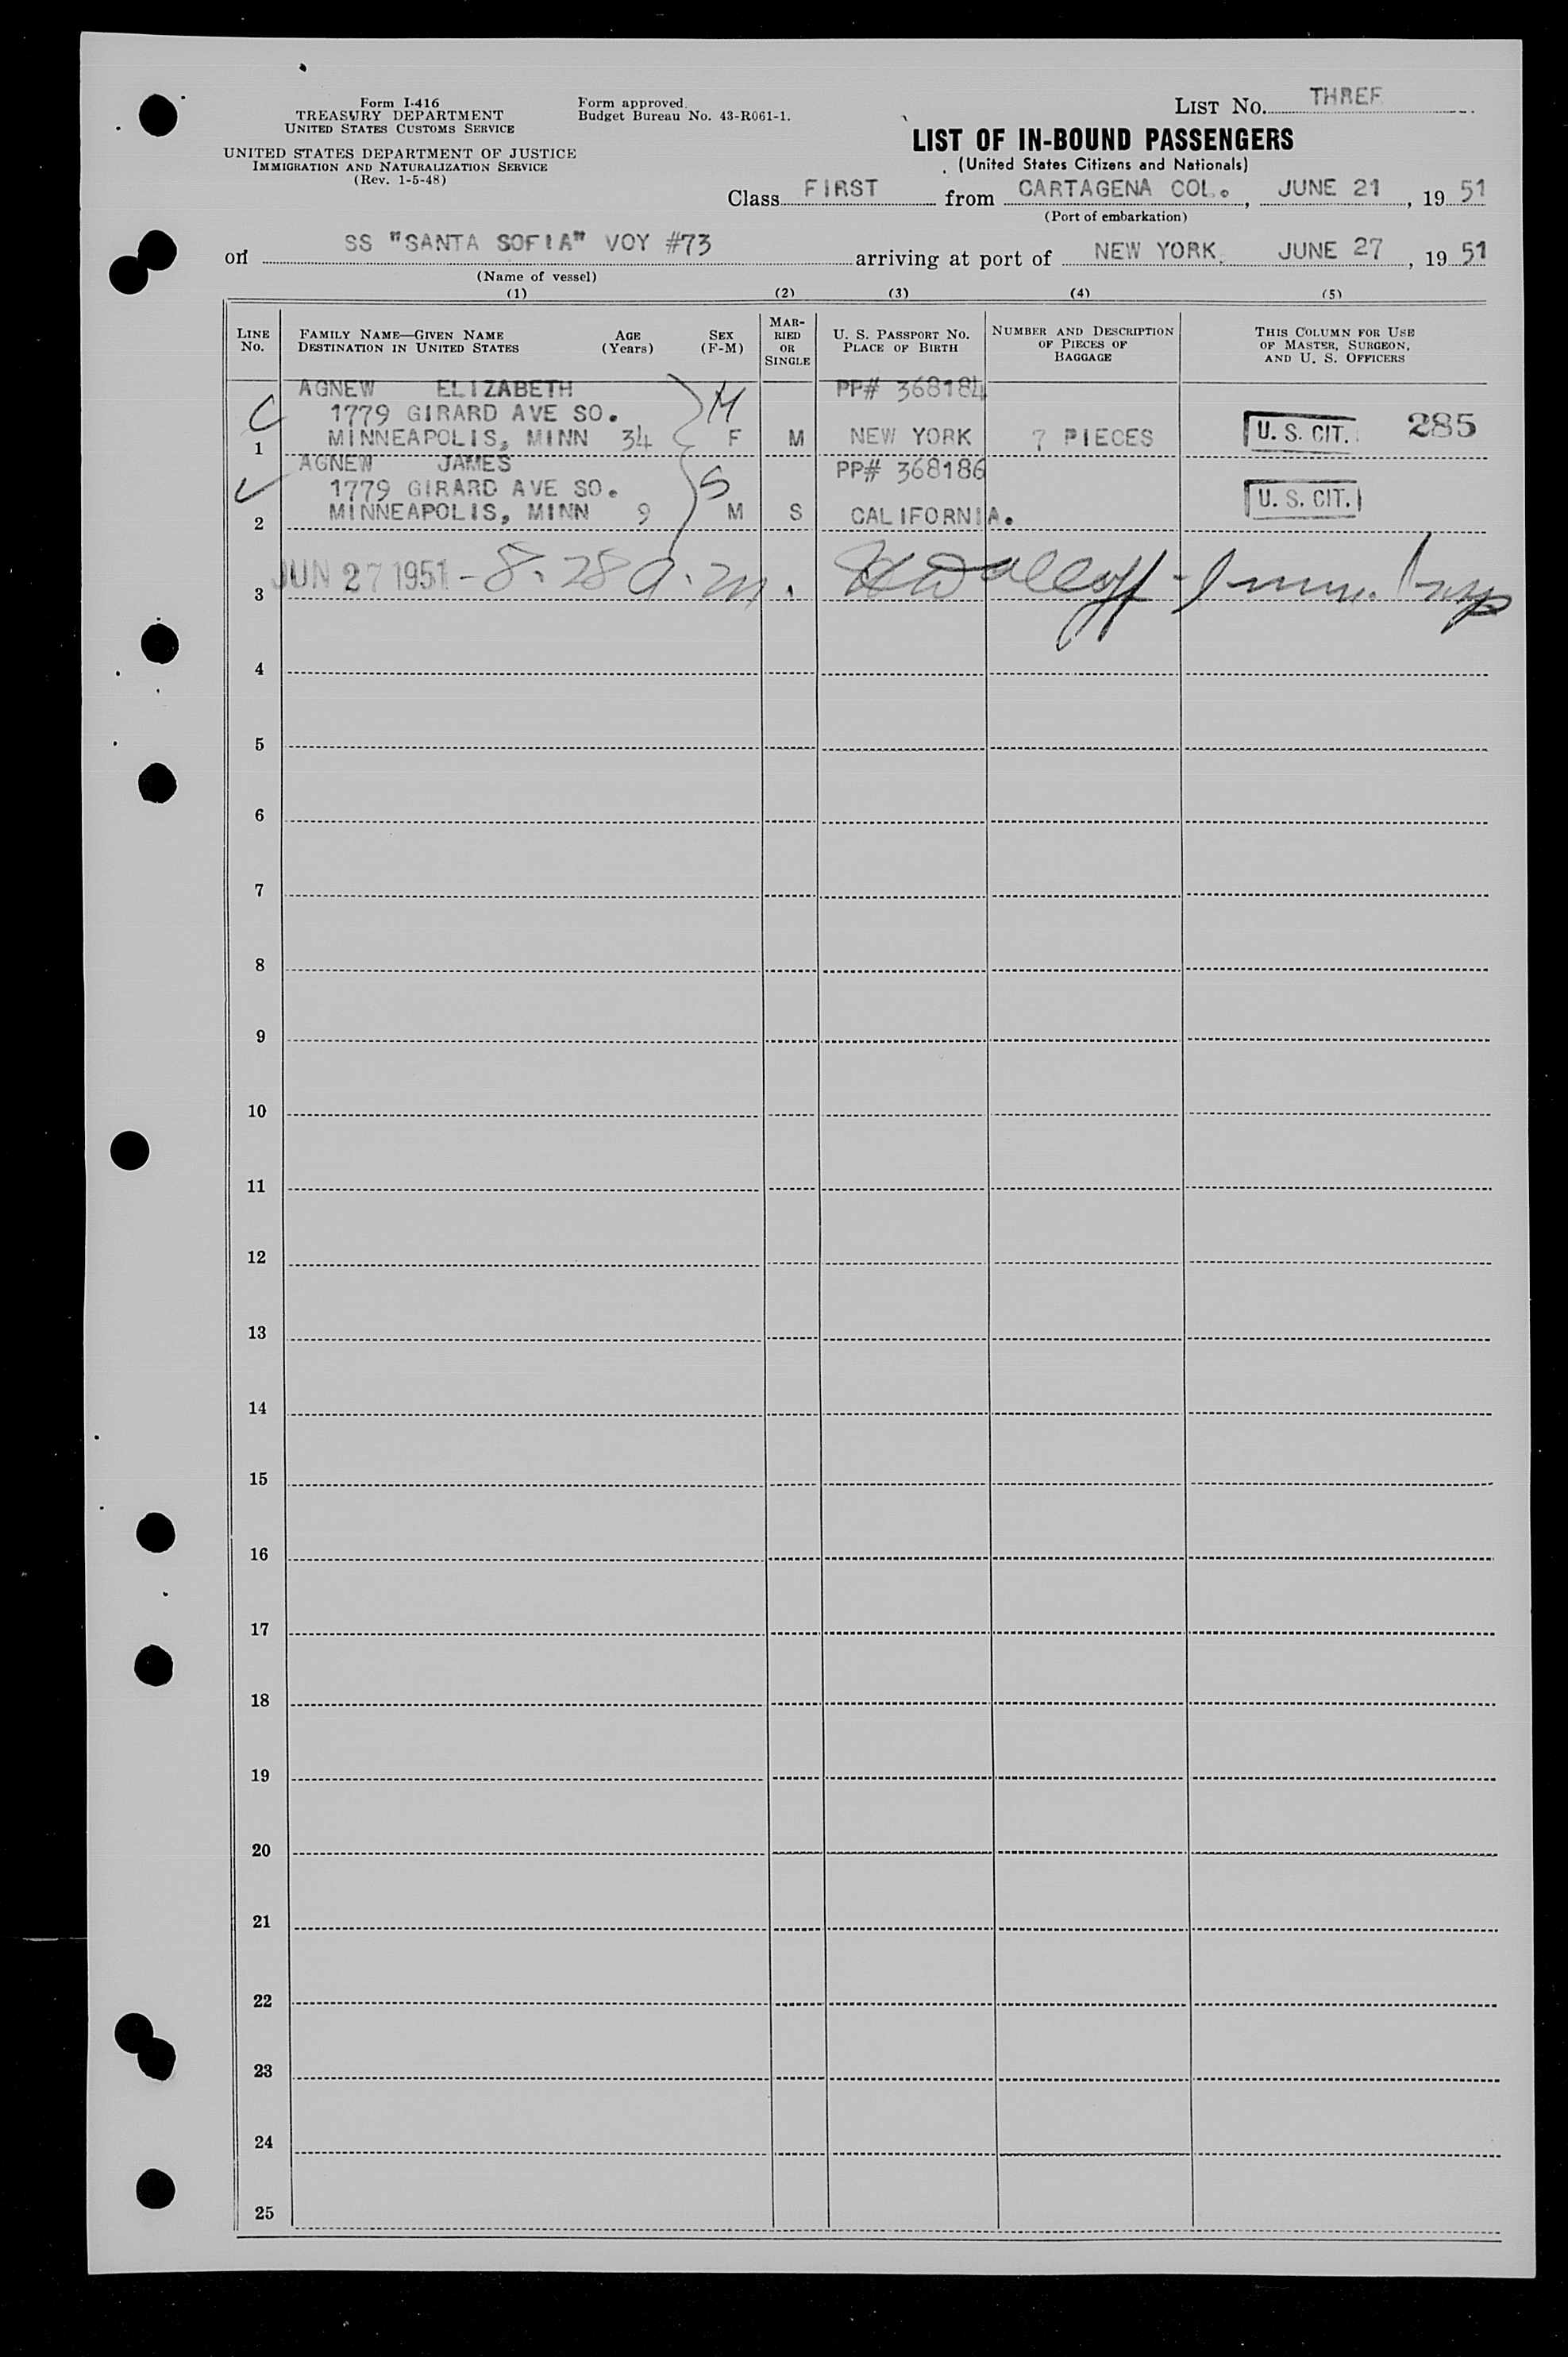 Form I-416
TREASURY DEPARTMENT
UNITED STATES CUSTOMS SERVICE
UNITED STATES DEPARTMENT OF JUSTICE
IMMIGRATION AND NATURALIZATION SERVICE
(Rev. 1-5-48)
Form approved.
Budget Bureau No. 43-R061-1.
LIST NO. THREE
LIST OF IN-BOUND PASSENGERS
(United States Citizens and Nationals)
Class FIRST from CARTAGENA COL., JUNE 21, 19 51
(Port of embarkation)
on SS "SANTA SOFIA" VOY #73 arriving at port of NEW YORK, JUNE 27, 19 51
(Name of vessel)
(1) (2) (3) (4) (5)
LINE NO. FAMILY NAME—GIVEN NAME DESTINATION IN UNITED STATES AGE (Years) SEX (F-M) MARRIED OR SINGLE U. S. PASSPORT NO. PLACE OF BIRTH NUMBER AND DESCRIPTION OF PIECES OF BAGGAGE THIS COLUMN FOR USE OF MASTER, SURGEON, AND U. S. OFFICERS
AGNEW ELIZABETH PP# 368184
1779 GIRARD AVE SO. M
1 MINNEAPOLIS, MINN 34 F M NEW YORK 7 PIECES U. S. CIT. 285
AGNEW JAMES PP# 368186
1779 GIRARD AVE SO. S U. S. CIT.
2 MINNEAPOLIS, MINN 9 M S CALIFORNIA.
3 JUN 27 1951 - 8.28 a.m. - Imm. Insp
4
5
6
7
8
9
10
11
12
13
14
15
16
17
18
19
20
21
22
23
24
25